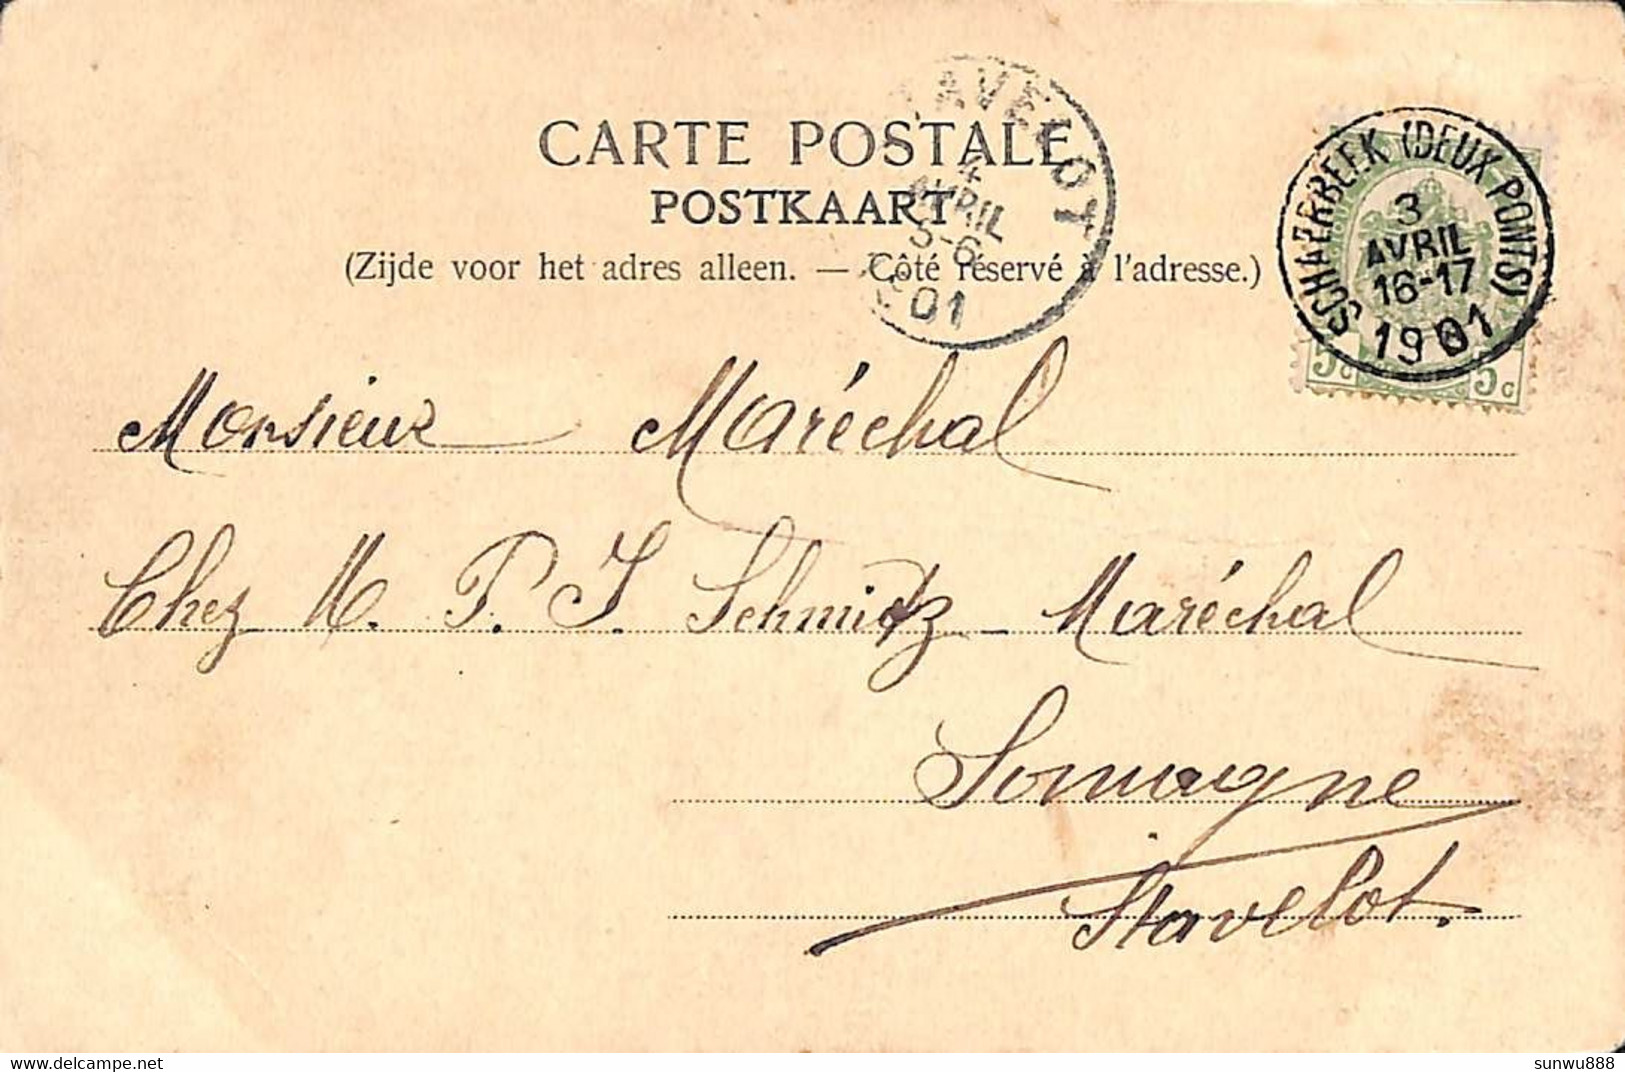 CARTE POSTALE
POSTKAART
(Zijde voor het adres alleen. — Côté réservé à l'adresse.)
AVELOT
4
AVRIL
5-6
01
SCHAERBEEK (DEUX PONTS)
3
AVRIL
16-17
1901
5c 5c
Monsieur Maréchal
Chez M. P. J. Schmitz-Maréchal
Somagne
Stavelot.
delcampe.net
sunwu888